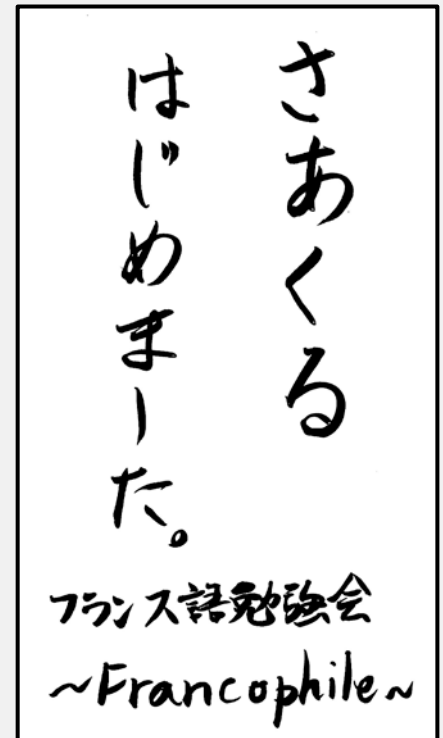 さあくる
はじめまーた。
フランス語勉強会
~Francophile~